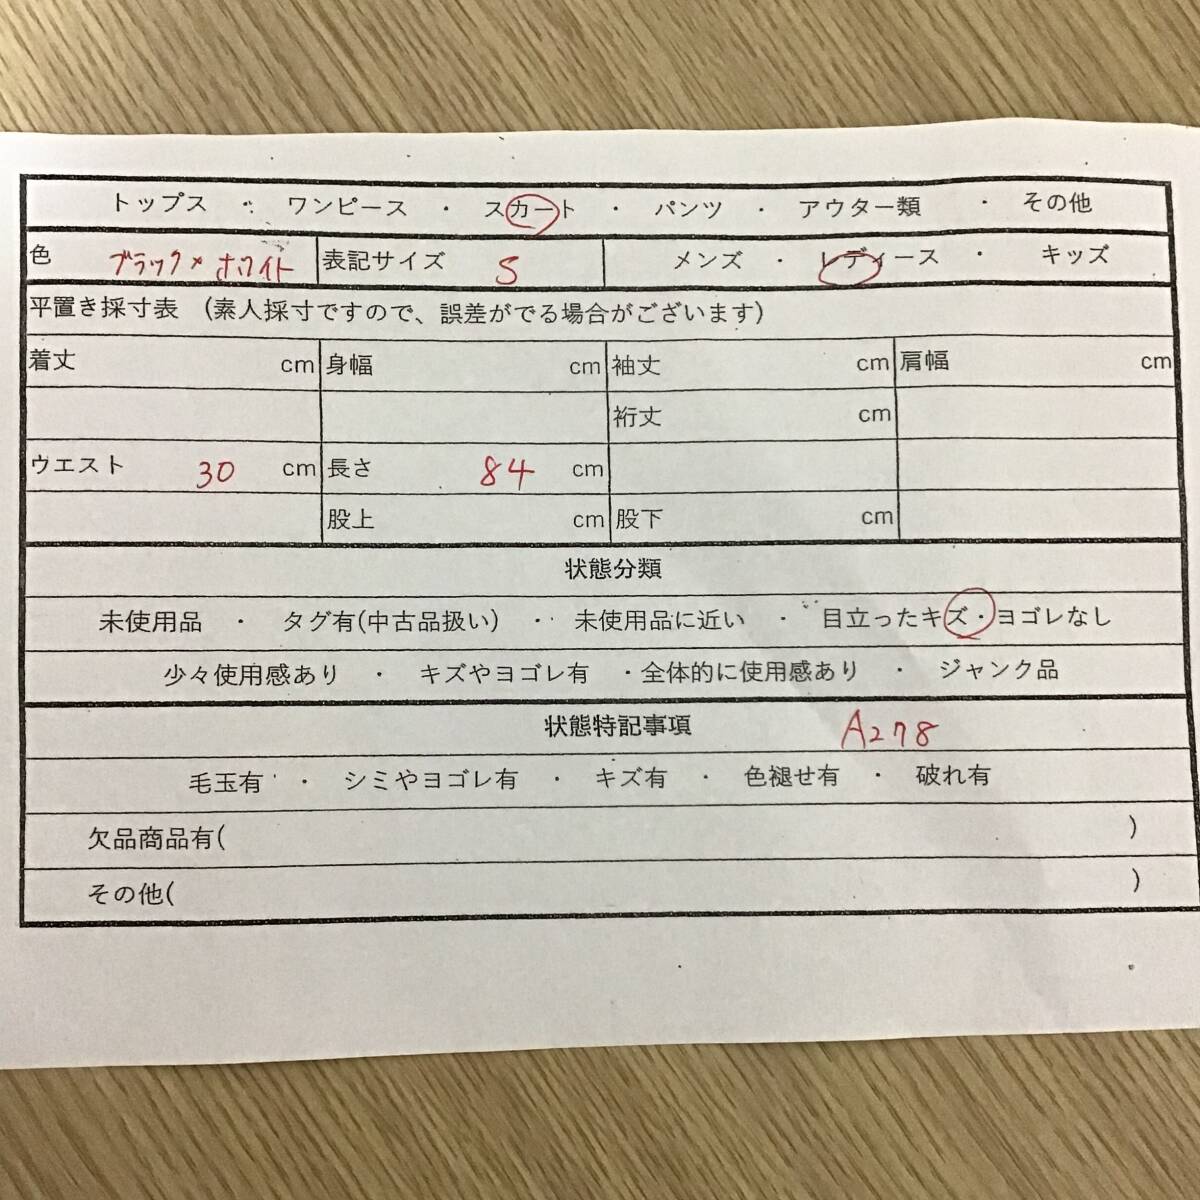 トップス ・ ワンピース ・ スカート ・ パンツ ・ アウター類 ・ その他
色 ブラック×ホワイト 表記サイズ S メンズ ・ レディース ・ キッズ
平置き採寸表 (素人採寸ですので、誤差がでる場合がございます)
着丈 cm 身幅 cm 袖丈 cm 肩幅 cm
裄丈 cm
ウエスト 30 cm 長さ 84 cm
股上 cm 股下 cm
状態分類
未使用品 ・ タグ有(中古品扱い) ・ 未使用品に近い ・ 目立ったキズ・ヨゴレなし
少々使用感あり ・ キズやヨゴレ有 ・全体的に使用感あり ・ ジャンク品
状態特記事項 A278
毛玉有 ・ シミやヨゴレ有 ・ キズ有 ・ 色褪せ有 ・ 破れ有
欠品商品有( )
その他( )